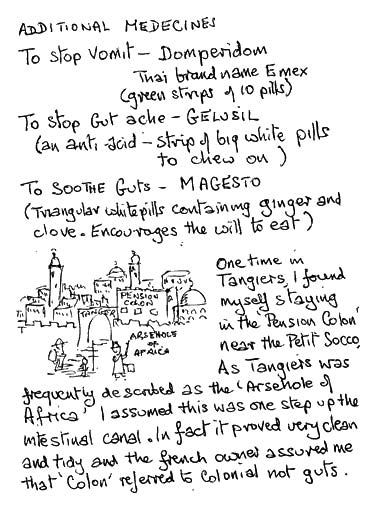 ADDITIONAL MEDECINES
To stop vomit - Domperidom
Thai brand name Emex
(green strips of 10 pills)
To stop gut ache - GELUSIL
(an anti-acid - strip of big white pills
to chew on)
To SOOTHE GUTS - MAGESTO
(Triangular white pills containing ginger and
clove. Encourages the will to eat)
PENSION
COLON
TANGIER
ARSEHOLE
of
AFRICA
One time in
Tangiers, I found
myself staying
in the 'Pension Colon'
near the Petit Socco.
As Tangiers was
frequently described as the 'Arsehole of
Africa' I assumed this was one step up the
intestinal canal. In fact it proved very clean
and tidy and the french owner assured me
that 'Colon' referred to Colonial not guts.